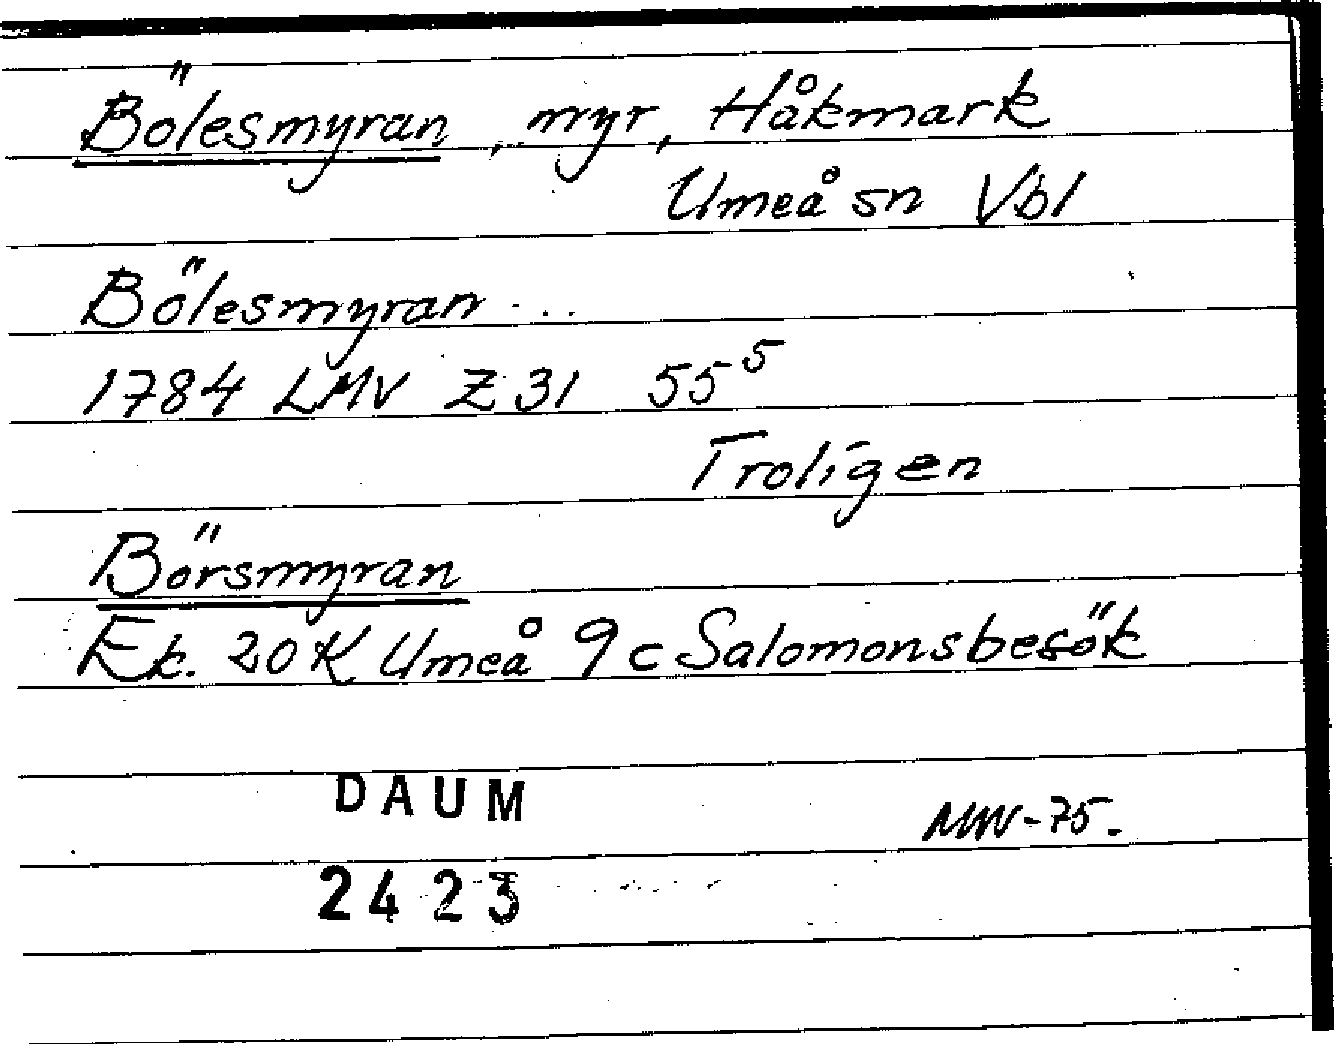 Bölesmyran, myr, Håkmark
Umeå sn Vbl
Bölesmyran ...
1784 LMV Z 31 55⁵
Troligen
Börsmyran
Ek. 20 K Umeå 9 c Salomonsbesök
DAUM
MW-75.
2423